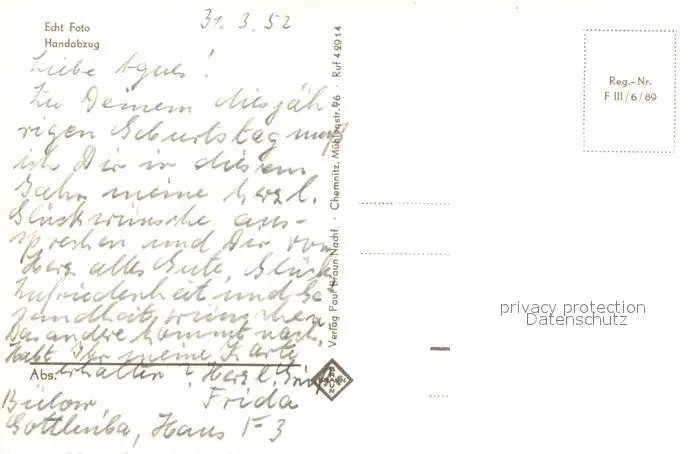 31.3.52
Echt Foto
Handabzug
Liebe Agnes!
Zu Deinem diesjäh-
rigen Geburtstag muß
ich Dir in diesem
Jahr meine herzl.
Glückwünsche aus-
sprechen und Dir von
Herz alles Gute, Glück
Zufriedenheit und Ge
sundheit wünschen
Das andere kommt nach.
Habt Ihr meine Karte
erhalten? Herzl. Grüße
Abs.
Frida
Bülow,
Gottleuba, Haus F 3
Verlag Paul Braun Nachf. · Chemnitz, Mühlenstr. 96 · Ruf 42914
Reg.-Nr.
F III/6/89
privacy protection
Datenschutz